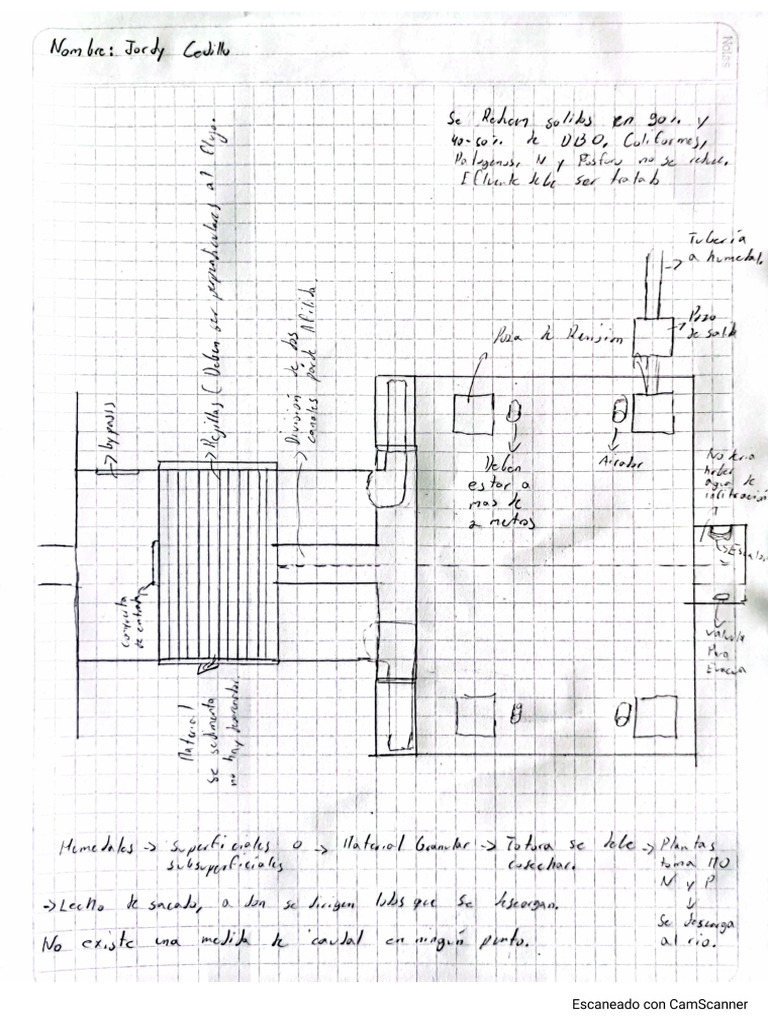 Notes
Nombre: Jordy Cedillo
Se Reducen solidos en 90% y
40-50% de DBO, Coliformes,
Patogenos, N y Fosforo no se reduce.
Efluente debe ser tratad
Tubería
a humedal.
Pozo
de salid
Poza de Revision
bypass
Rejillas (Deben ser perpendiculares al flujo.
División de dos
canales
Deben
estar a
mas de
2 metros
Aireador
No deria
haber
agua de
infiltración
Compuerta
de entrada
Valvula
Para
Evacua
Material
se sedimenta
no hay desarenador.
Humedales -> Superficiales o -> Material Granular -> Totora se debe -> Plantas
subsuperficiales
cosechar.
toma MO
N y P
Se descarga
al rio.
-> Lecho de secado, a don se dirigen lodos que se descargan.
No existe una medida de caudal en ningún punto.
Escaneado con CamScanner